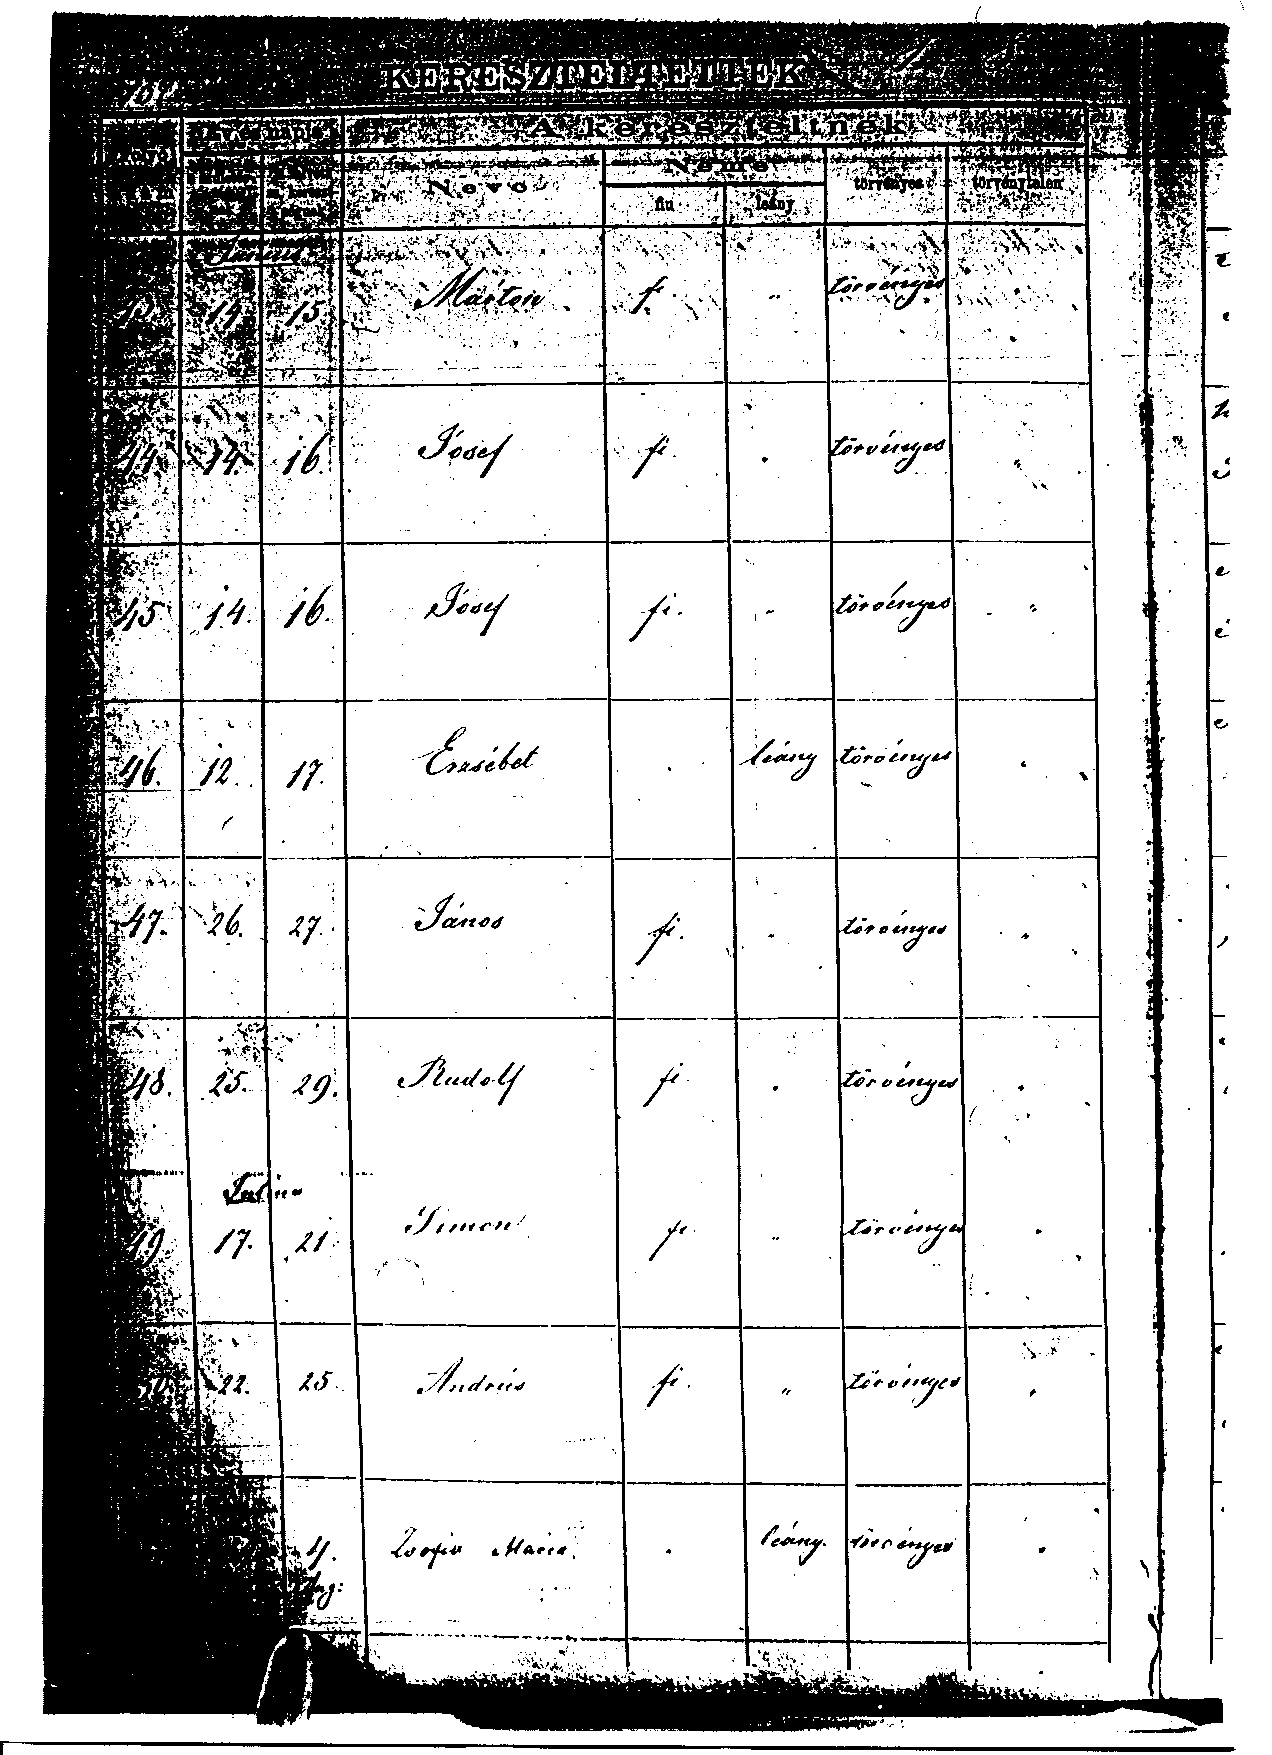 KERESZTELTETTEK
A' kereszteltnek
Neve
Neme
fiu
leány
törvényes
törvénytelen
Junius
14 15 Márton fi. " törvényes
44. 14. 16. Jósef fi. törvényes "
45 14. 16. Jósef fi. " törvényes "
46. 12. 17. Erzsébet leány törvényes
47. 26. 27. János fi. " törvényes "
48. 25. 29. Rudolf fi. törvényes
Julius
49. 17. 21. Simon fi " törvényes
50. 22. 25. András fi. " törvényes
4. Zsofia Maria. leány. törvényes
Aug: